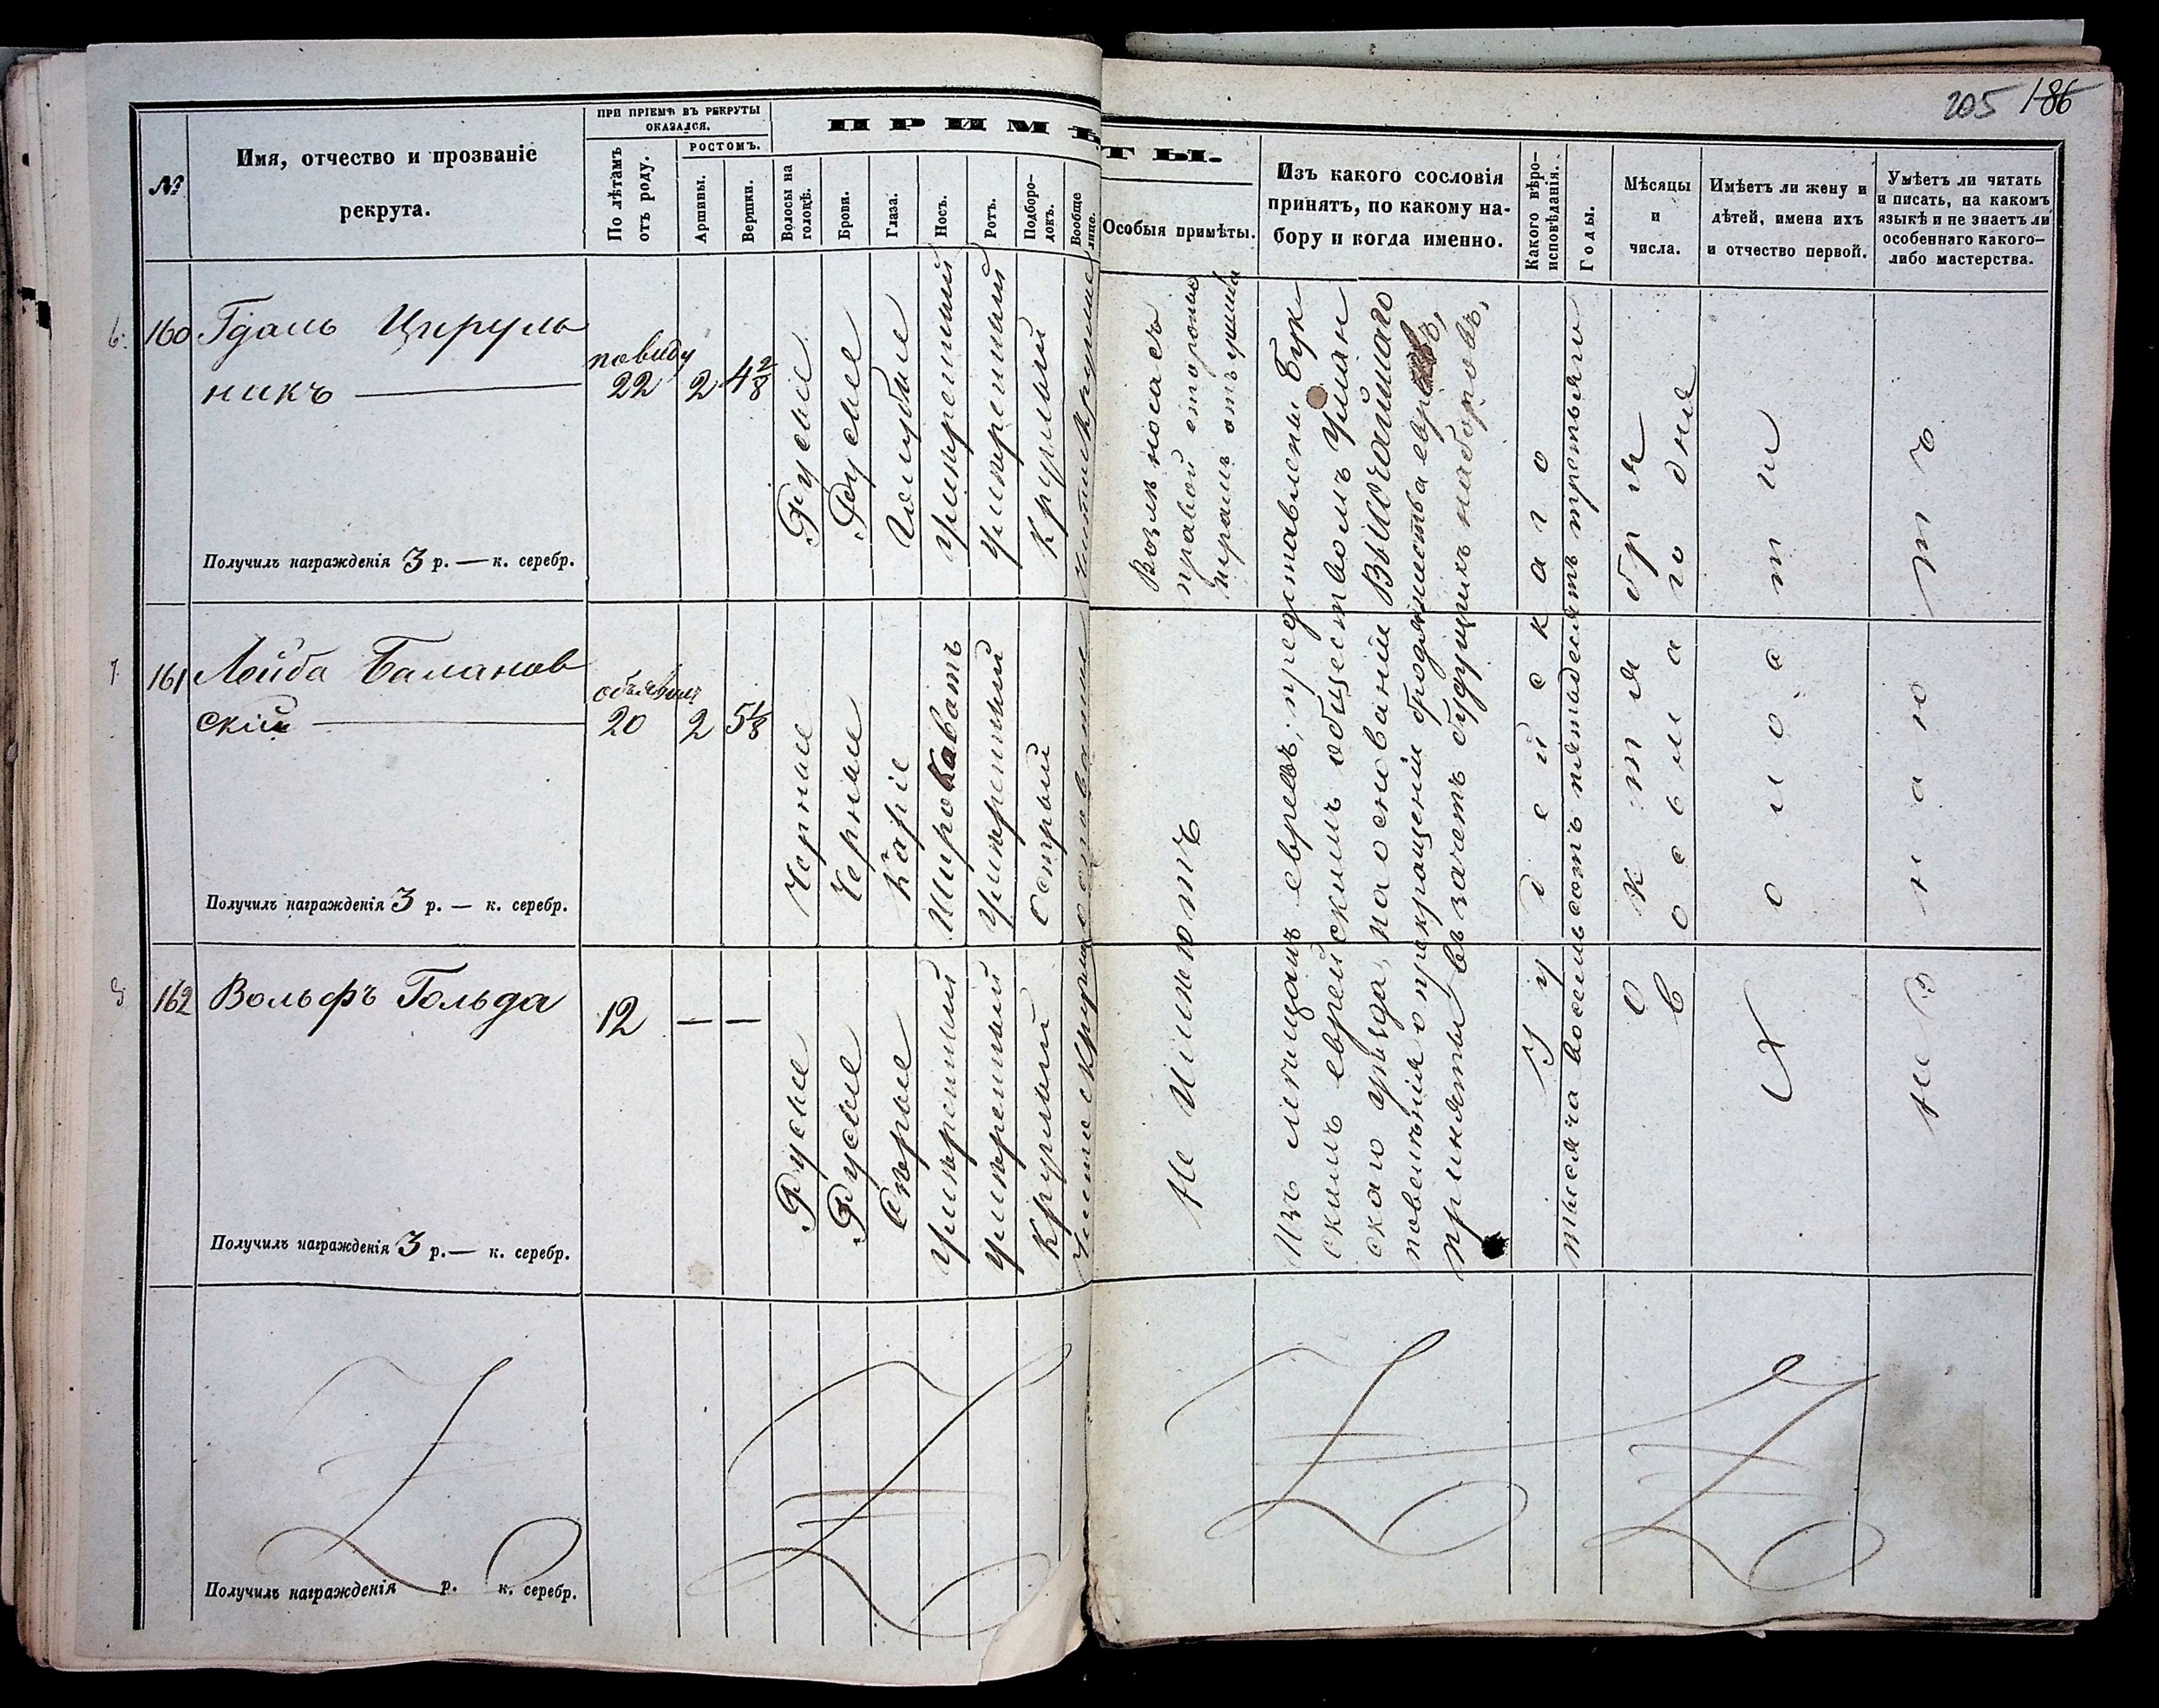 205 186
№
Имя, отчество и прозваніе
рекрута.
ПРИ ПРІЕМѢ ВЪ РЕКРУТЫ
ОКАЗАЛСЯ.
По лѣтамъ
отъ роду.
РОСТОМЪ.
Аршины.
Вершки.
ПРИМѢТЫ.
Волосы на
головѣ.
Брови.
Глаза.
Носъ.
Ротъ.
Подборо-
докъ.
Вообще
лице.
Особыя примѣты.
Изъ какого сословія
принятъ, по какому на-
бору и когда именно.
Какого вѣро-
исповѣданія.
Годы.
Мѣсяцы
и
числа.
Имѣетъ ли жену и
дѣтей, имена ихъ
и отчество первой.
Умѣетъ ли читать
и писать, на какомъ
языкѣ и не знаетъ ли
особеннаго какого-
либо мастерства.
6.
160
Гдаль Цируль
никъ
повиду
22
2
4 2/8
Русые
Русые
Голубые
Умѣренный
Умѣренный
Круглый
Чистое круглое
Возлѣ носа съ
правой стороны
шрамъ
Получилъ награжденія 3 р. — к. серебр.
7.
161
Лейба Баланов
скій
объявилъ
20
2
5 1/8
Черные
Черные
Каріе
Широковатъ
Умѣренный
Острый
Получилъ награжденія 3 р. — к. серебр.
8
162
Вольфъ Гольда
12
—
—
Русые
Русые
Сѣрые
Умѣренный
Умѣренный
Круглый
Чистое круглое
Не имѣютъ
Получилъ награжденія 3 р. — к. серебр.
Изъ мѣщанъ евреевъ, представлены Бук
скимъ еврейскимъ обществомъ Уман
скаго уѣзда, на основаніи ВЫСОЧАЙШАГО
повелѣнія о прекращеніи бродяжества евреевъ,
приняты въ зачетъ будущихъ наборовъ,
Іудейскаго
тысяча восемьсотъ пятьдесятъ третьяго
Октября
восьмаго дня
Холосты
Не знаютъ
Получилъ награжденія р. к. серебр.